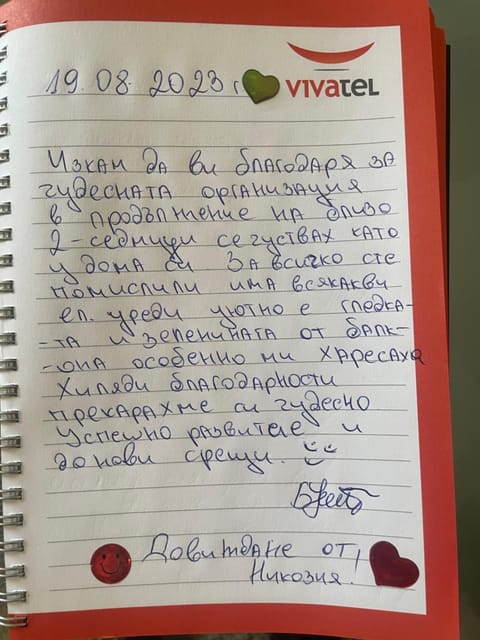 19.08.2023 г.
VIVATEL
Искам да ви благодаря за
чудесната организация
в продължение на близо
2-седмици се чуствах като
у дома си. За всичко сте
помислили има всякакви
ел. уреди уютно е гледка-
-та и зеленината от балк-
-она особенно ми харесаха
Хиляди благодарности
прекарахме си чудесно
Успешно развитие и
до нови срещи.
Довиждане от
Никозия.